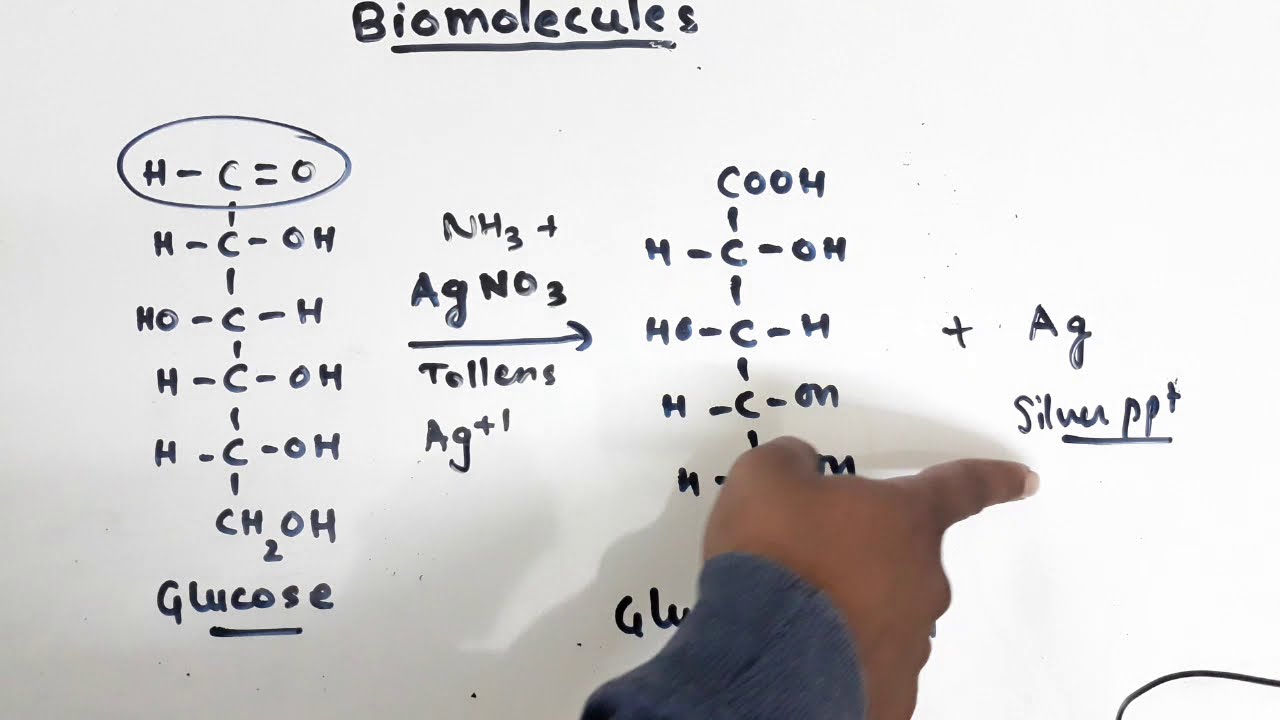 Biomolecules
H - C = O
H - C - OH
HO - C - H
H - C - OH
H - C - OH
CH2OH
Glucose
NH3 +
AgNO3
Tollens
Ag+1
COOH
H - C - OH
HO - C - H
H - C - OH
H -
+ Ag
Silver ppt